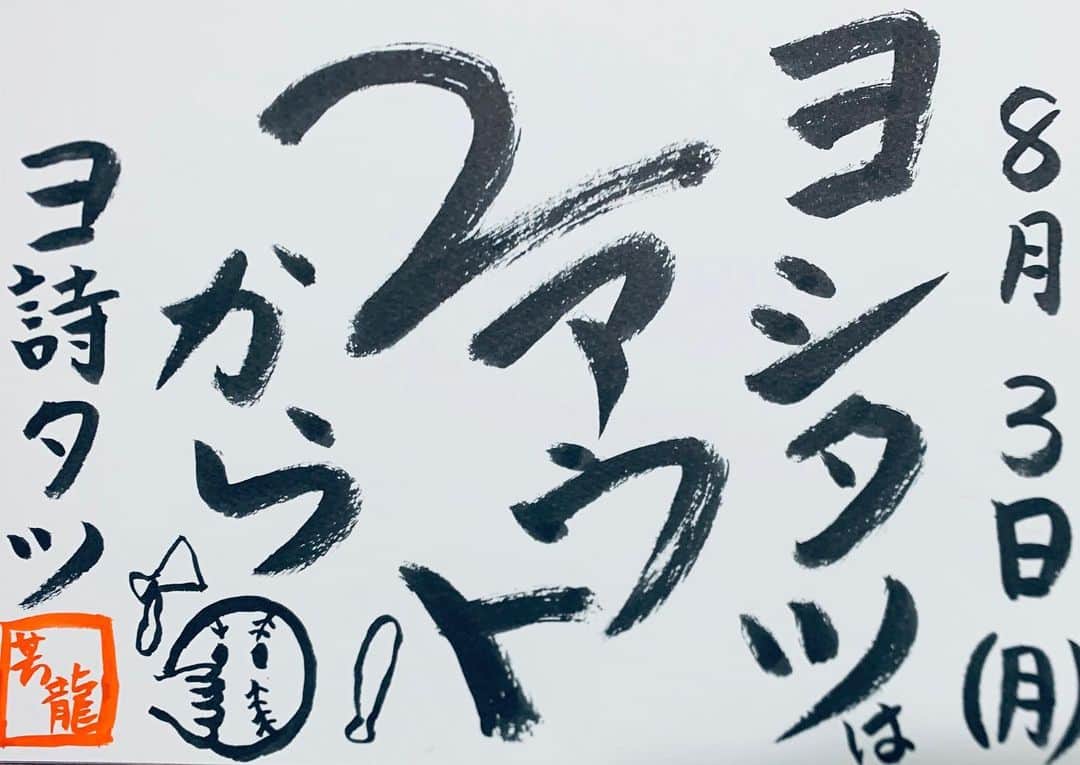 8月3日(月)
ヨシタツは
ファウト
から
ヨ詩タツ
龍